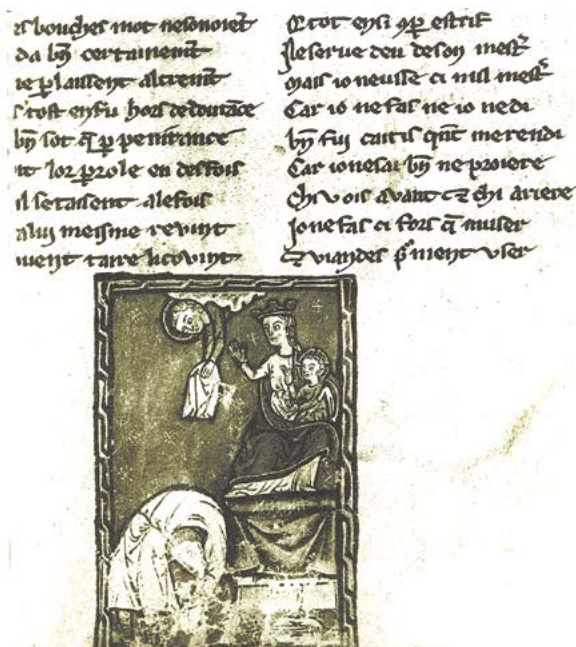 s bouches mot ne sonoiēt
da bn̄ certainem̄t
plaissent altrem̄t
tost ensi fu hors de doutāce
bn̄ sot q̄ ꝑ penitance
it lor ꝑole en des fois
il se taisent alefois
a lui meisme revint
ment taire li covint
E tot ensi ꝯ ꝑ estrif
serve deu de son mest̄
Mais io neusse ci nul mest̄
Car io ne fas ne io ne di
bn̄ fui caitis qn̄t me rendi
Car io ne sai bn̄ ne proiere
Chi vois avant ⁊ chi ariere
Jo ne fas ci fors q̄ muser
⁊ viandes ꝑ nient vser